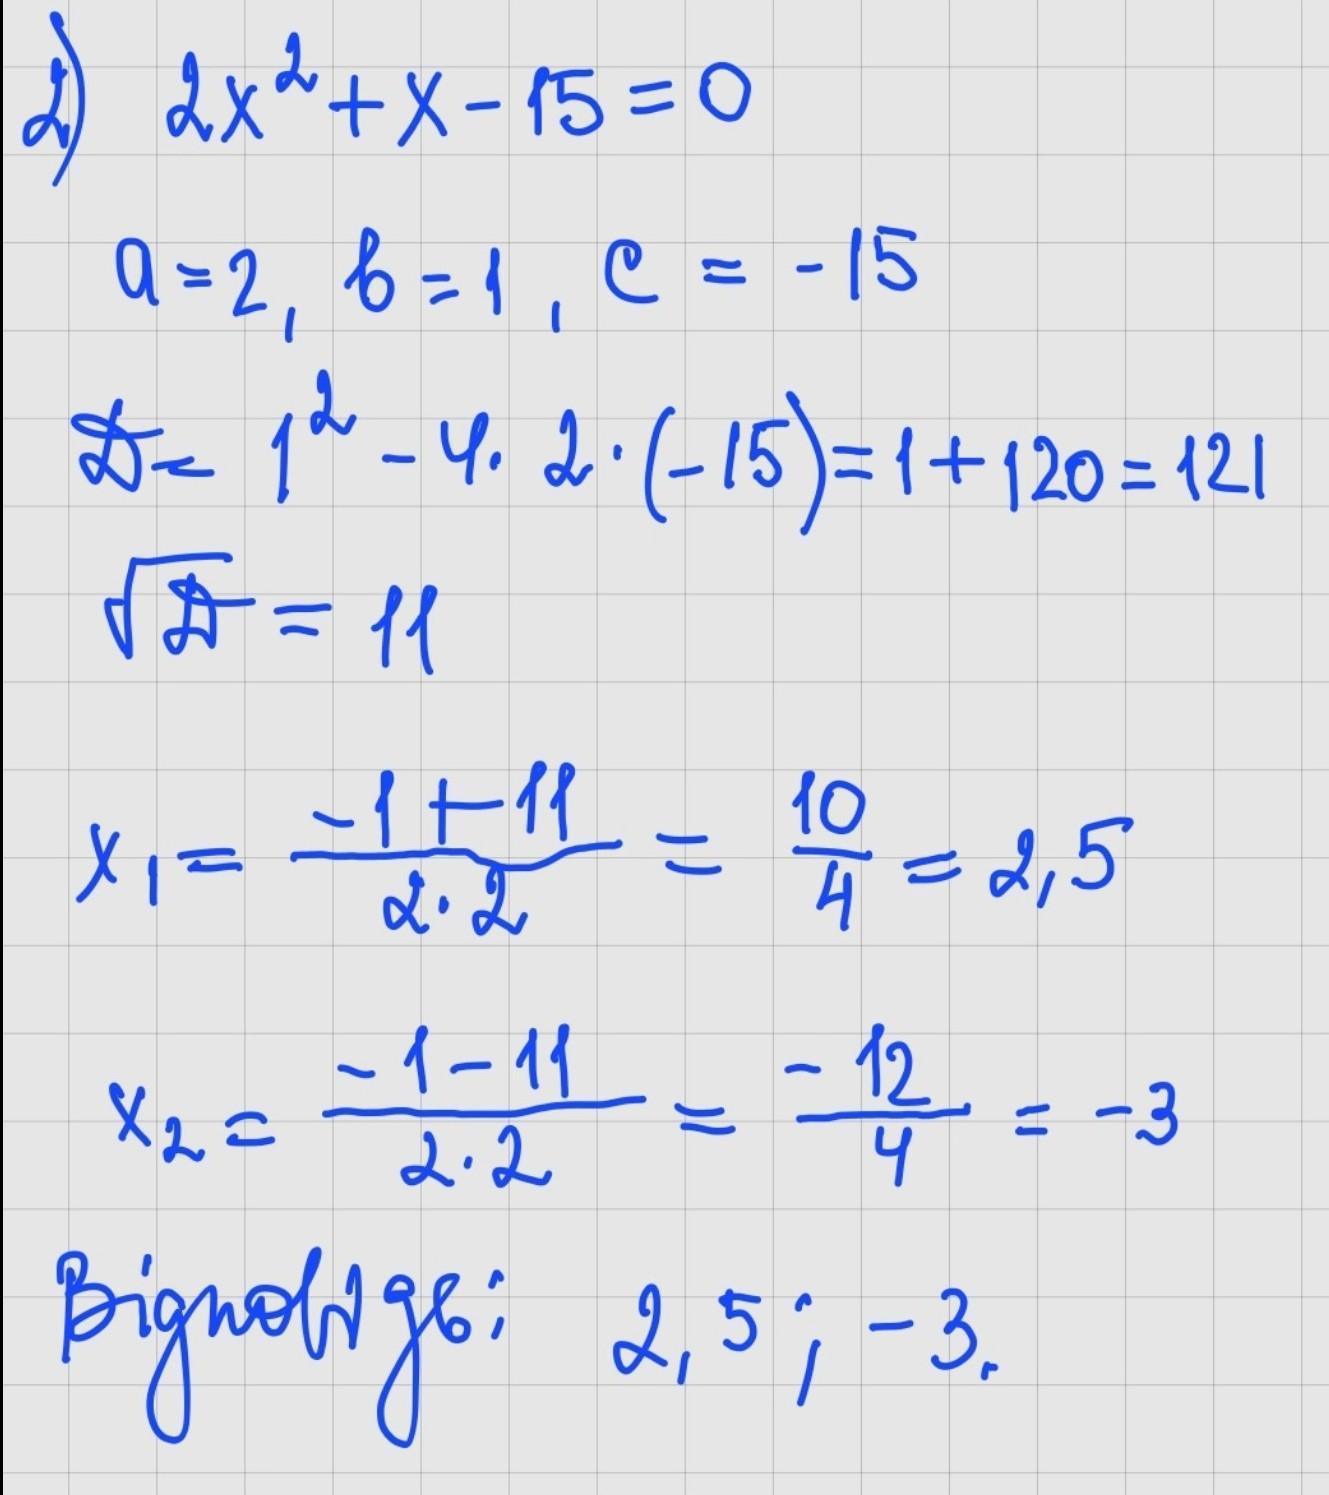 2) 2x² + x - 15 = 0
a = 2, b = 1, c = -15
D = 1² - 4 · 2 · (-15) = 1 + 120 = 121
√D = 11
x₁ = (-1 + 11)/(2 · 2) = 10/4 = 2,5
x₂ = (-1 - 11)/(2 · 2) = -12/4 = -3
Відповідь: 2,5; -3.